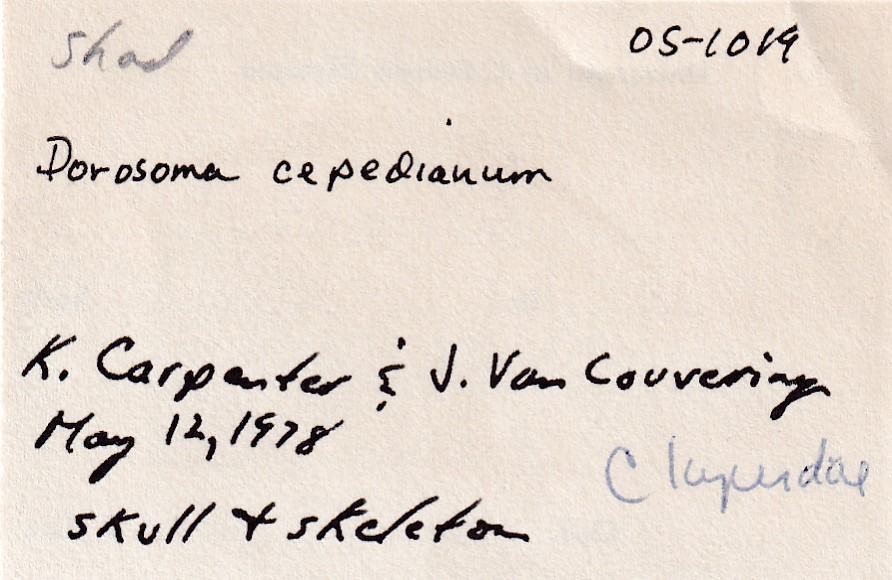 Shad
OS-1019
Dorosoma cepedianum
K. Carpenter & J. Van Couvering
May 12, 1978
Clupeidae
skull + skeleton